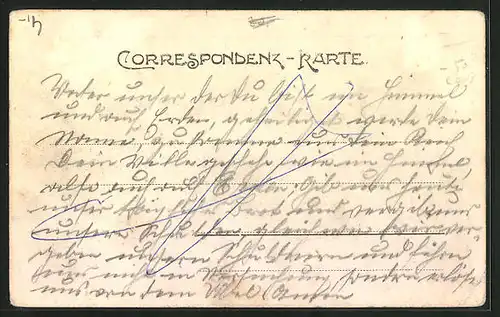 4.-
CORRESPONDENZ-KARTE.
Vater unser der Du bist im Himmel
und auf Erden, geheiligt werde Dein
Name, zu komme uns Dein Reich
Dein Wille geschehe wie im Himmel
also auch auf Erden. Gib uns heute
unser täglich Brot und vergib uns
unsere Schulden als wir ver
geben unsern Schuldnern und führe
uns nicht in Versuchung sondern erlöse
uns von dem Übel Amen